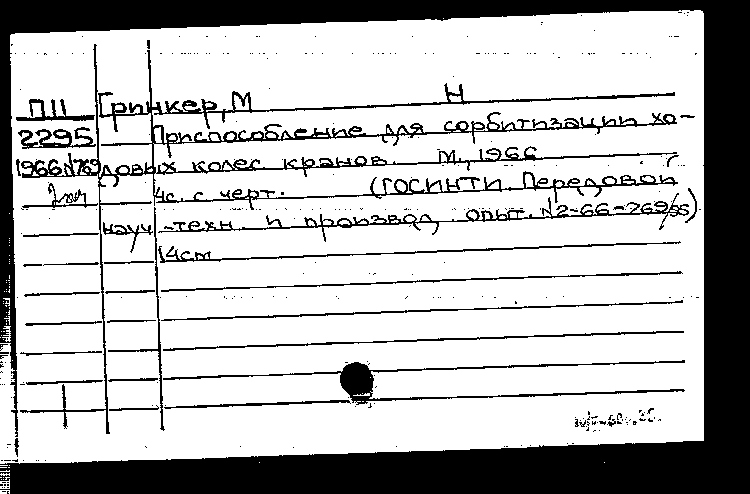 П11 Гринкер, М Н
2295 Приспособление для сорбитизации хо-
1966 №769 довых колес кранов. М., 1966
4с. с черт. (ГОСИНТИ. Передовой
науч.-техн. и производ. опыт. №2-66-769/35)
14см